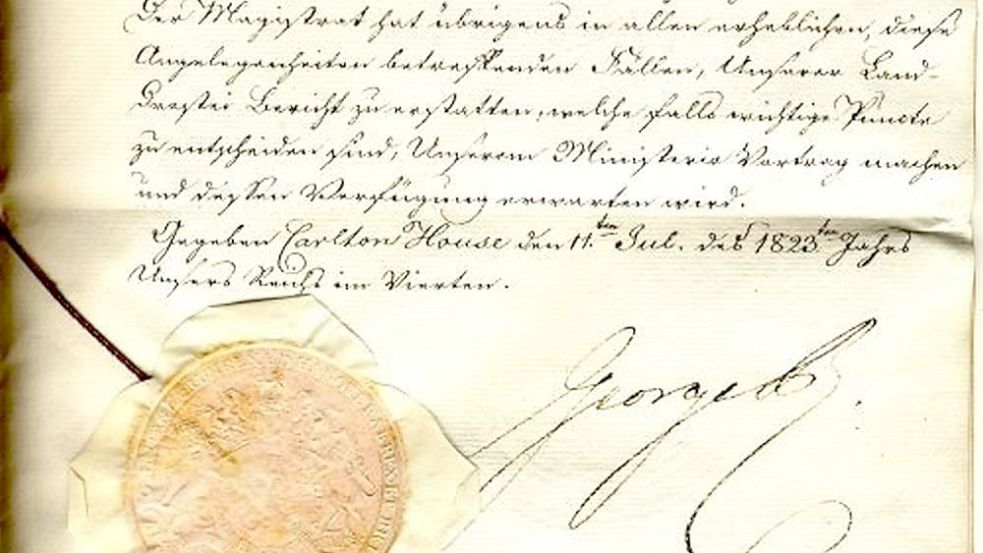 Der Magistrat hat übrigens in allen erheblichen, diese
Angelegenheiten betreffenden Fällen, Unserer Land-
drostei Bericht zu erstatten, welche falls wichtige Puncte
zu entscheiden sind, Unserem Ministerio Vortrag machen
und dessen Verfügung erwarten wird.
Gegeben Carlton House den 11.ten Jul. des 1823.ten Jahrs
Unsers Reichs im Vierten.
George R.